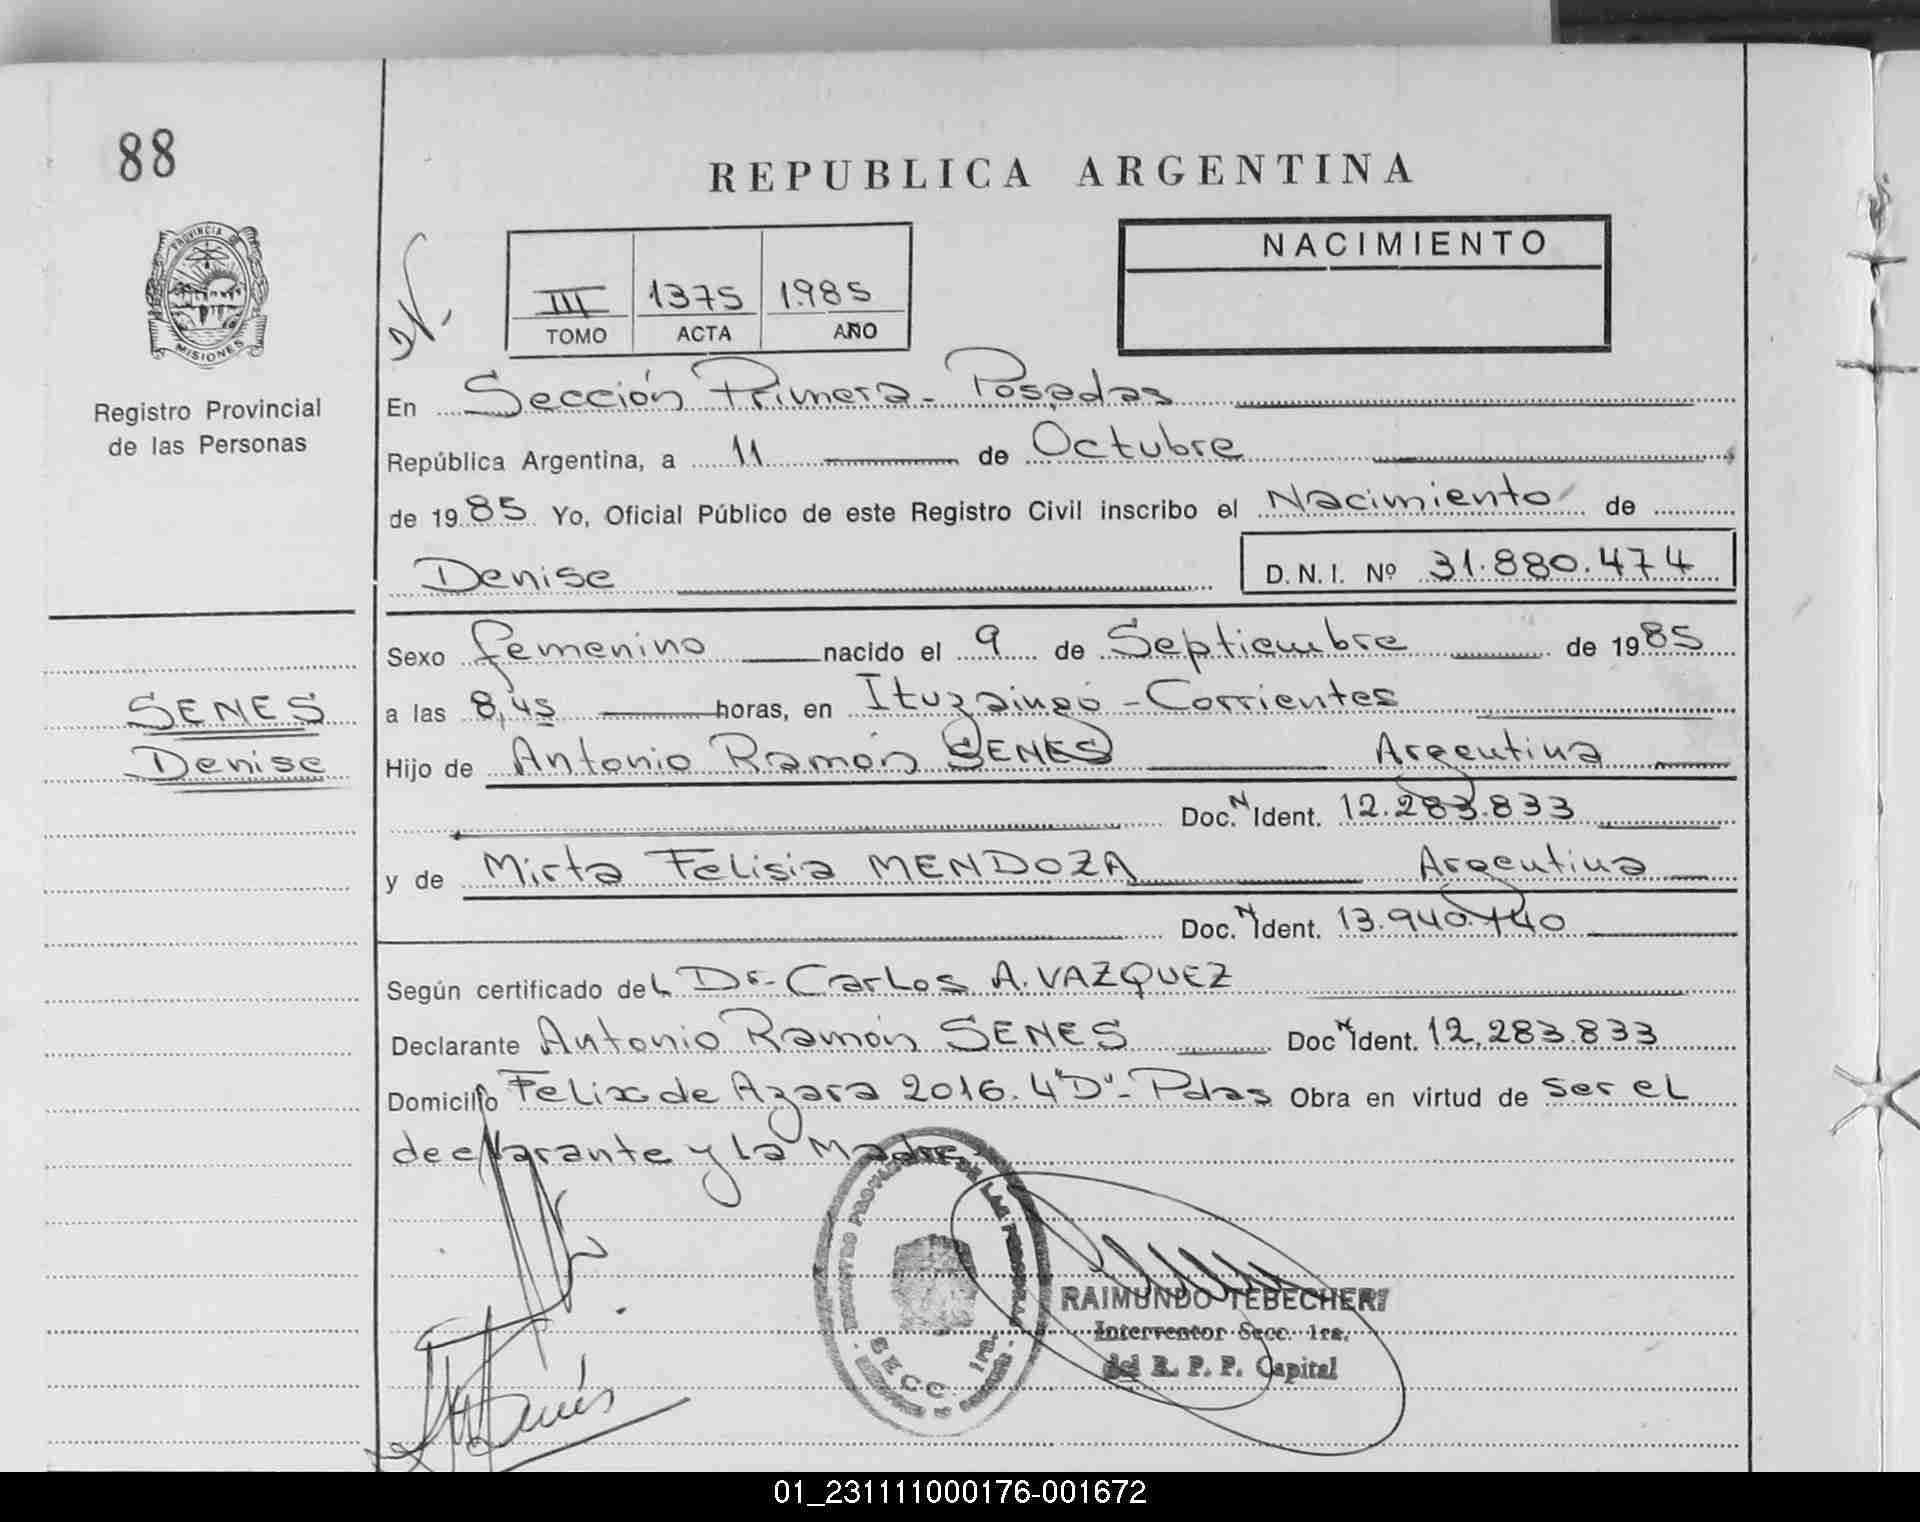 88
REPUBLICA ARGENTINA
PROVINCIA DE
MISIONES
Registro Provincial
de las Personas
III 1375 1.985
TOMO ACTA AÑO
NACIMIENTO
En Sección Primera - Posadas
República Argentina, a 11 de Octubre
de 1985 Yo, Oficial Público de este Registro Civil inscribo el Nacimiento de
Denise D.N.I. Nº 31.880.474
Sexo femenino nacido el 9 de Septiembre de 1985
SENES
Denise
a las 8,45 horas, en Ituzaingó - Corrientes
Hijo de Antonio Ramón SENES Argentina
Doc. N Ident. 12.283.833
y de Mirta Felisia MENDOZA Argentina
Doc. N Ident. 13.940.740
Según certificado del Dr. Carlos A. VAZQUEZ
Declarante Antonio Ramón SENES Doc N Ident. 12.283.833
Domicilio Felix de Azara 2016. 4"D" - Pdas Obra en virtud de ser el
declarante y la Madre
SECC. 1ra.
RAIMUNDO TEBECHERI
Interventor Secc. 1ra.
del R. P. P. Capital
01_231111000176-001672